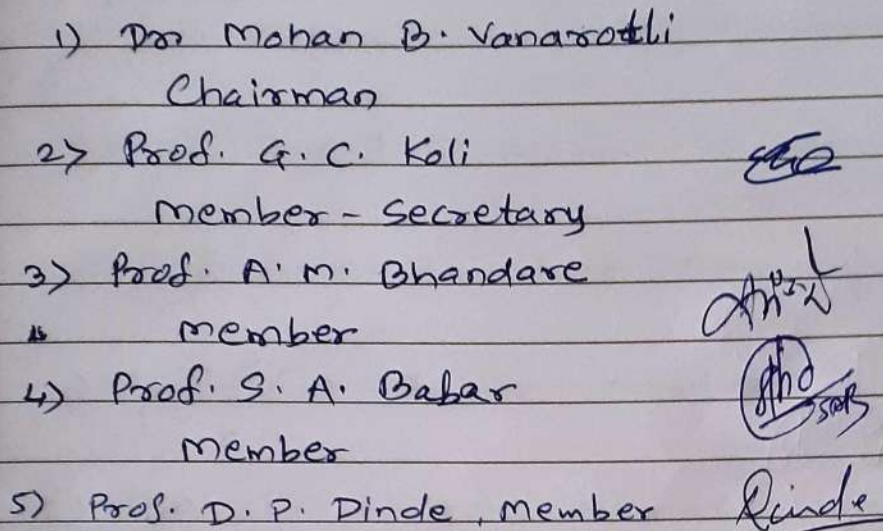 1) Dr Mohan B. Vanarotti
Chairman
2) Prof. G. C. Koli
Member - Secretary
3) Prof. A. M. Bhandare
Member
4) Prof. S. A. Babar
Member
5) Prof. D. P. Dinde, Member Dinde